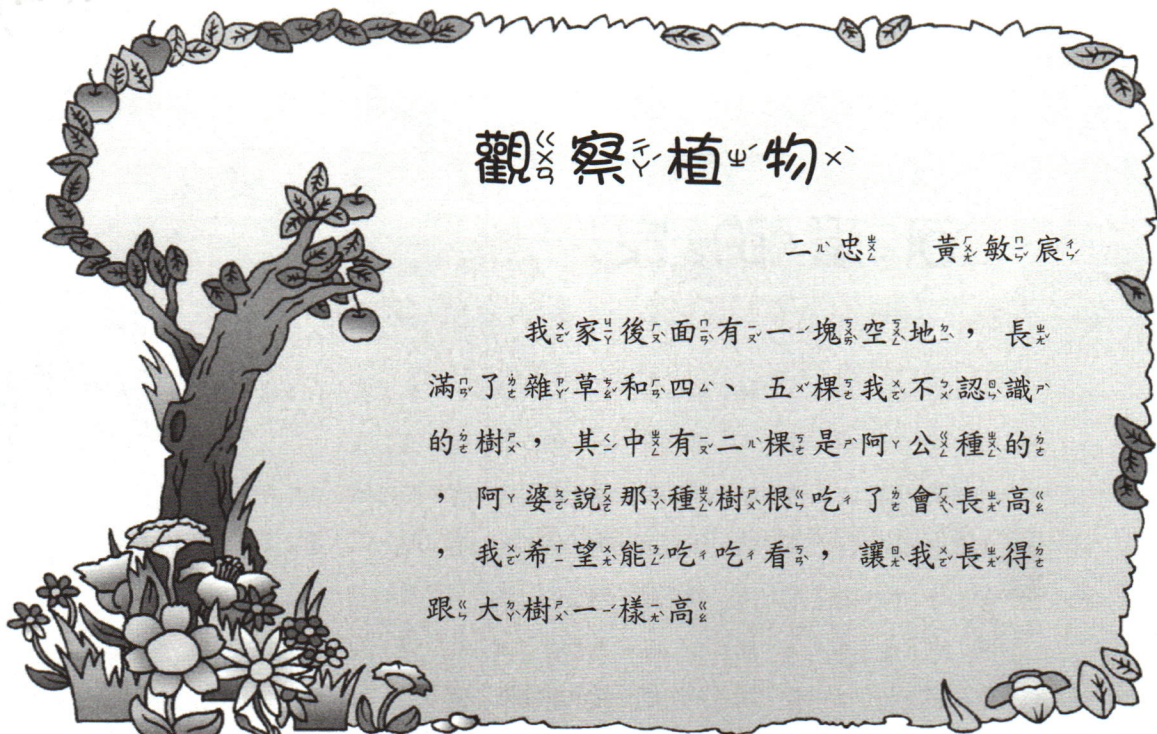 觀察植物
二忠　黃敏宸
我家後面有一塊空地，長
滿了雜草和四、五棵我不認識
的樹，其中有二棵是阿公種的
，阿婆說那種樹根吃了會長高
，我希望能吃吃看，讓我長得
跟大樹一樣高